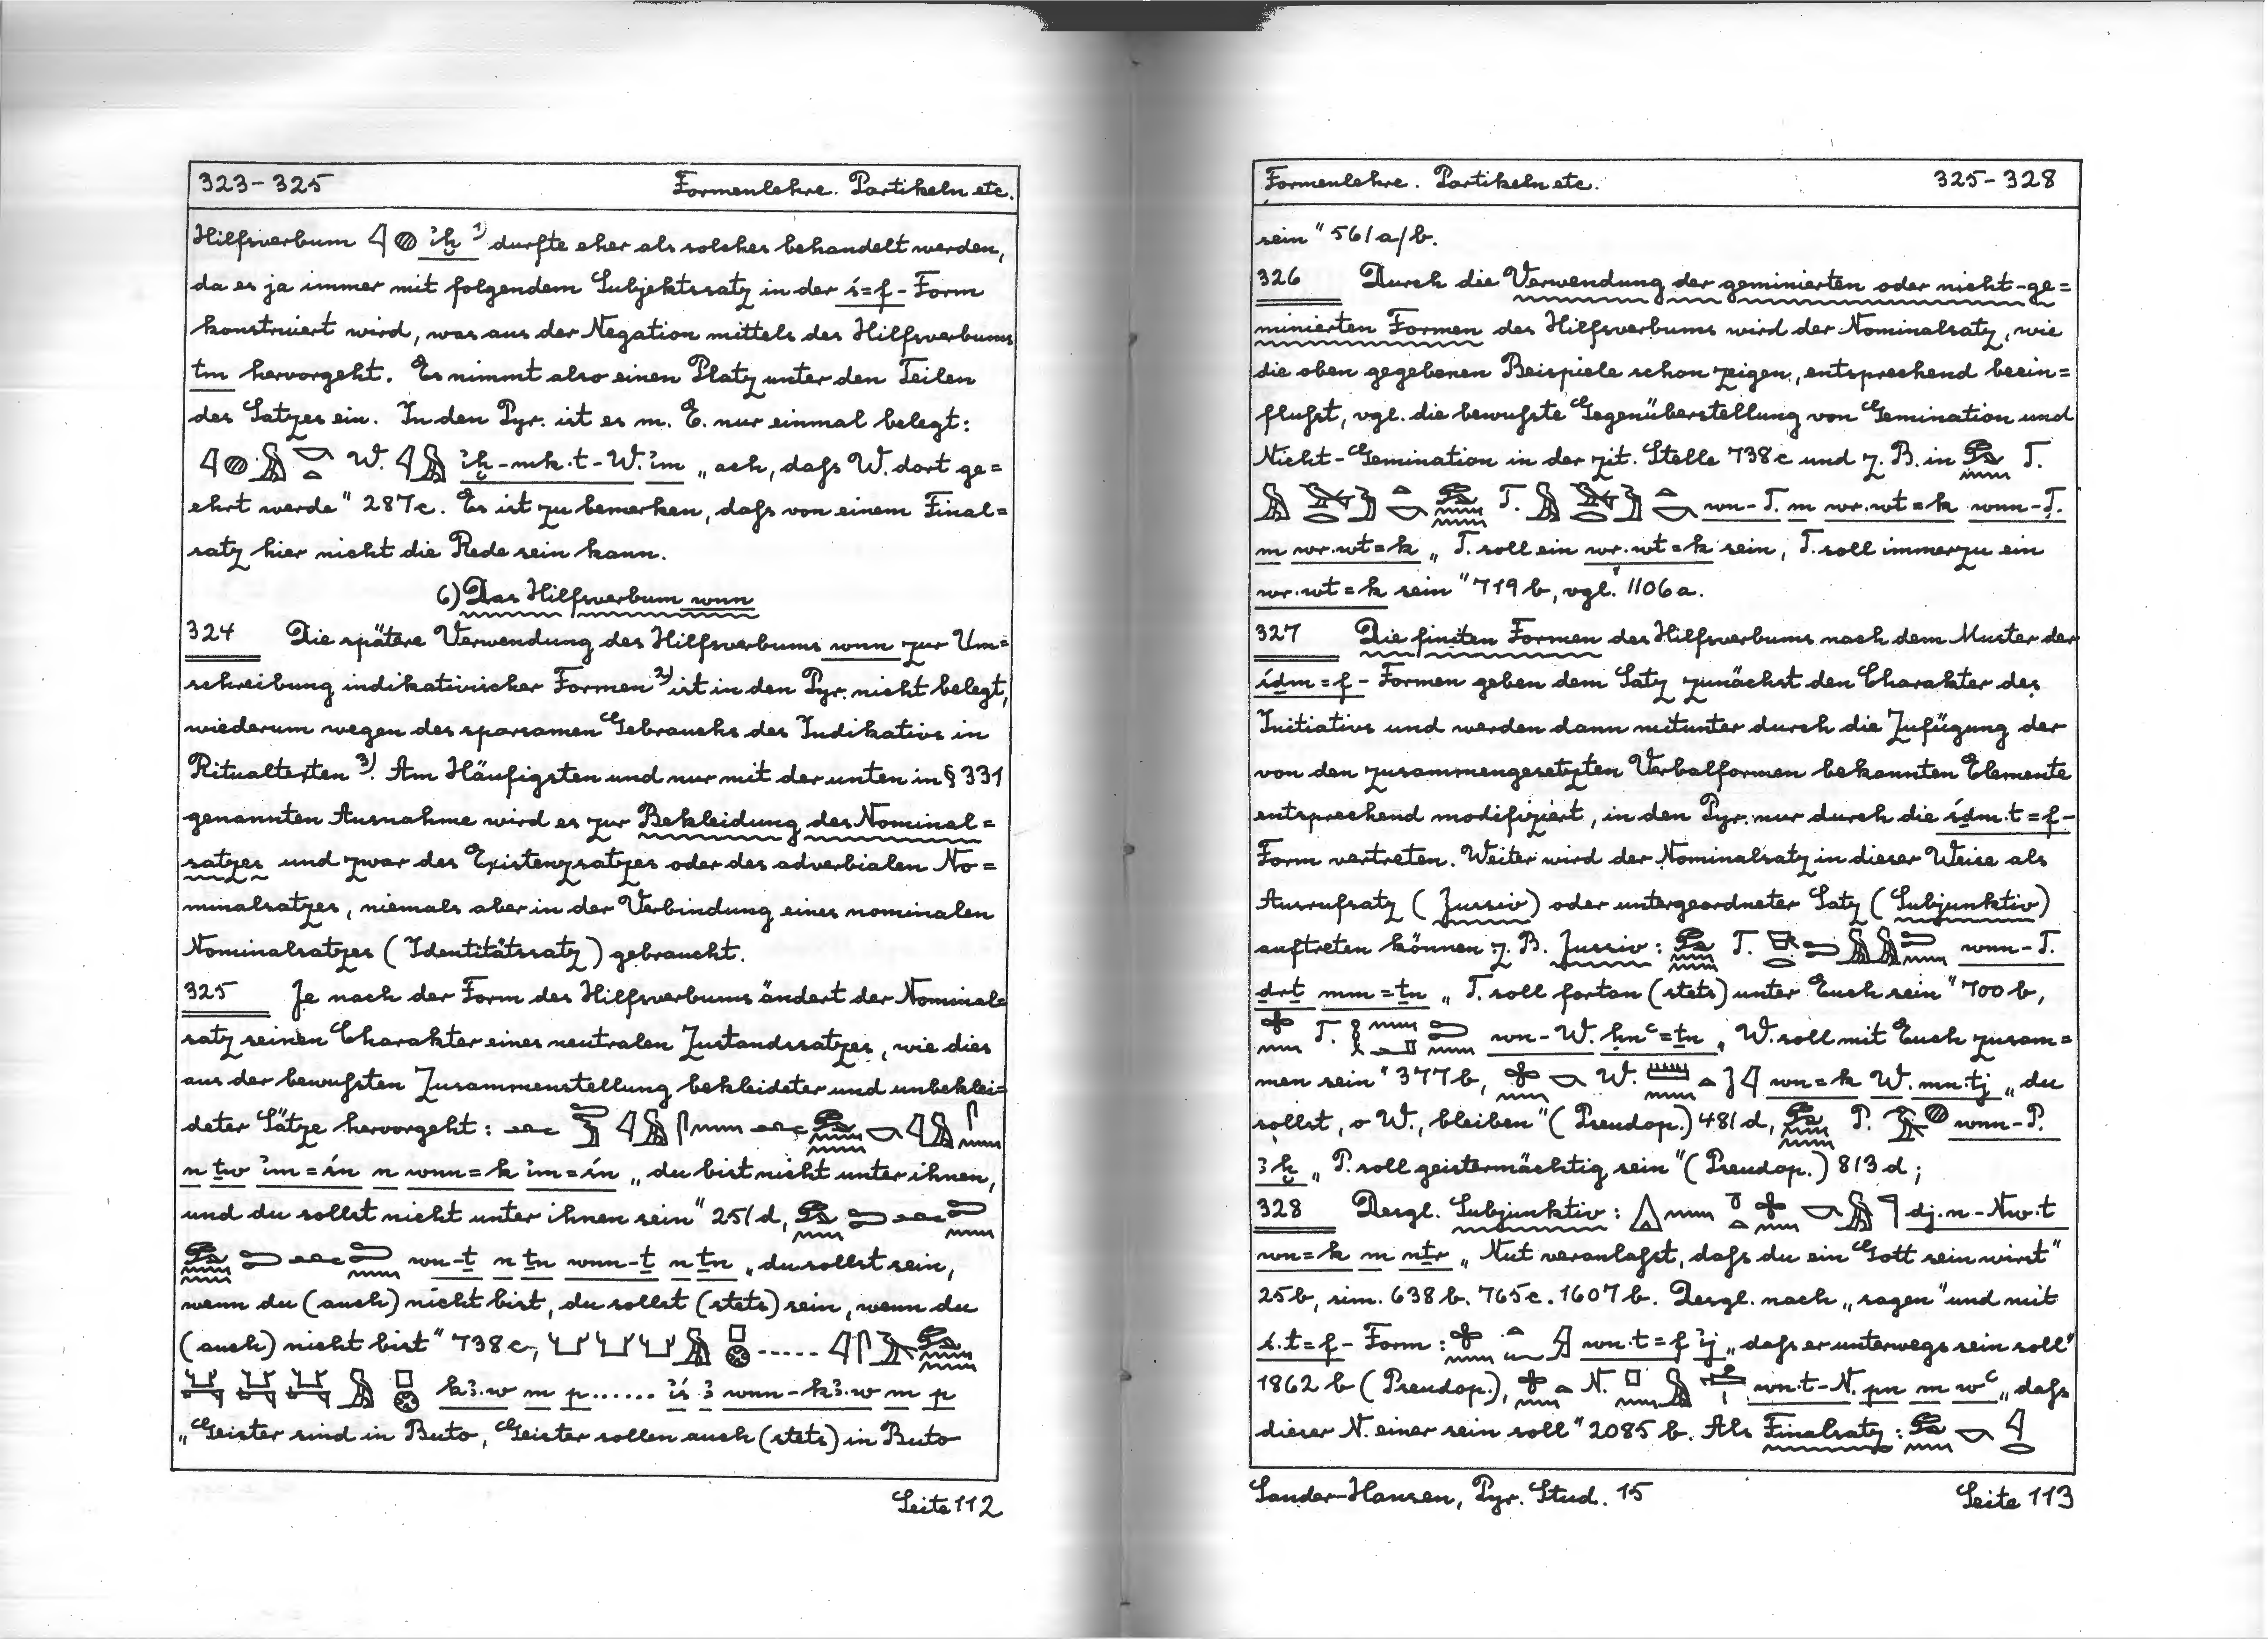 323-325 Formenlehre. Partikeln etc.
Hilfsverbum 𓇋𓐍 ꞽḫ ¹⁾ dürfte eher als solches behandelt werden,
da es ja immer mit folgendem Subjektssatz in der ś=f-Form
konstruiert wird, was aus der Negation mittels des Hilfsverbums
tm hervorgeht. Es nimmt also einen Platz unter den Teilen
des Satzes ein. In den Pyr. ist es m. E. nur einmal belegt:
𓇋𓐍𓅓𓎡𓏏 W. 𓇋𓅓 ꞽḫ-mk.t-W. ꞽm „ach, daſs W. dort ge=
ehrt werde" 287c. Es ist zu bemerken, daſs von einem Final=
satz hier nicht die Rede sein kann.
6) Das Hilfsverbum wnn
324 Die spätere Verwendung des Hilfsverbums wnn zur Um=
schreibung indikativischer Formen ²⁾ ist in den Pyr. nicht belegt,
wiederum wegen des sparsamen Gebrauchs des Indikativs in
Ritualtexten ³⁾. Am Häufigsten und nur mit der unten in § 331
genannten Ausnahme wird es zur Bekleidung des Nominal=
satzes und zwar des Existenzsatzes oder des adverbialen No=
minalsatzes, niemals aber in der Verbindung eines nominalen
Nominalsatzes (Identitätssatz) gebraucht.
325 Je nach der Form des Hilfsverbums ändert der Nominal=
satz seinen Charakter eines neutralen Zustandssatzes, wie dies
aus der bewuſsten Zusammenstellung bekleideter und unbeklei=
deter Sätze hervorgeht:
n ṯw ꞽm=śn n wnn=k ꞽm=śn „du bist nicht unter ihnen,
und du sollst nicht unter ihnen sein" 251d,
wn-ṯ n ṯn wnn-ṯ n ṯn „du sollst sein,
wenn du (auch) nicht bist, du sollst (stets) sein, wenn du
(auch) nicht bist" 738c,
kꜣ.w m p ...... ꞽś ꜣ wnn-kꜣ.w m p
„Geister sind in Buto, Geister sollen auch (stets) in Buto
Seite 112
Formenlehre. Partikeln etc. 325-328
sein" 561a/b.
326 Durch die Verwendung der geminierten oder nicht-ge=
minierten Formen des Hilfsverbums wird der Nominalsatz, wie
die oben gegebenen Beispiele schon zeigen, entsprechend beein=
fluſst, vgl. die bewuſste Gegenüberstellung von Gemination und
Nicht-Gemination in der zit. Stelle 738c und z. B. in T.
T. wn-T. m wr.wt=k wnn-T.
m wr.wt=k „T. soll ein wr.wt=k sein, T. soll immerzu ein
wr.wt=k sein" 719b, vgl. 1106a.
327 Die finiten Formen des Hilfsverbums nach dem Muster der
śḏm=f-Formen geben dem Satz zunächst den Charakter des
Initiativs und werden dann mitunter durch die Zufügung der
von den zusammengesetzten Verbalformen bekannten Elemente
entsprechend modifiziert, in den Pyr. nur durch die śḏm.t=f-
Form vertreten. Weiter wird der Nominalsatz in dieser Weise als
Ausrufsatz (Jussiv) oder untergeordneter Satz (Subjunktiv)
auftreten können z. B. Jussiv: T. wnn-T.
ḏrṯ mm=ṯn „T. soll fortan (stets) unter Euch sein" 700b,
T. wn-W. ḥnꜥ=ṯn „W. soll mit Euch zusam=
men sein" 377b, W. wn=k W. mn.tj „du
sollst, o W., bleiben" (Pseudop.) 481d, P. wnn-P.
ꜣḫ „P. soll geistermächtig sein" (Pseudop.) 813d;
328 Desgl. Subjunktiv: dj.n-Nw.t
wn=k m nṯr „Nut veranlaſst, daſs du ein Gott sein wirst"
25b, sim. 638b. 765c. 1607b. Desgl. nach „sagen" und mit
ś.t=f-Form: wn.t=f ꞽj „daſs er unterwegs sein soll"
1862b (Pseudop.), N. wn.t-N. pn m wꜥ „daſs
dieser N. einer sein soll" 2085b. Als Finalsatz:
Sander-Hansen, Pyr. Stud. 15 Seite 113